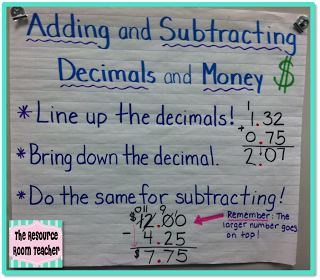 Adding and Subtracting
Decimals and Money $
* Line up the decimals!
1
1.32
+ 0.75
2.07
* Bring down the decimal.
* Do the same for subtracting!
0 11 9
$12.00
- 4.25
$7.75
Remember: The
larger number goes
on top!
The Resource
Room Teacher